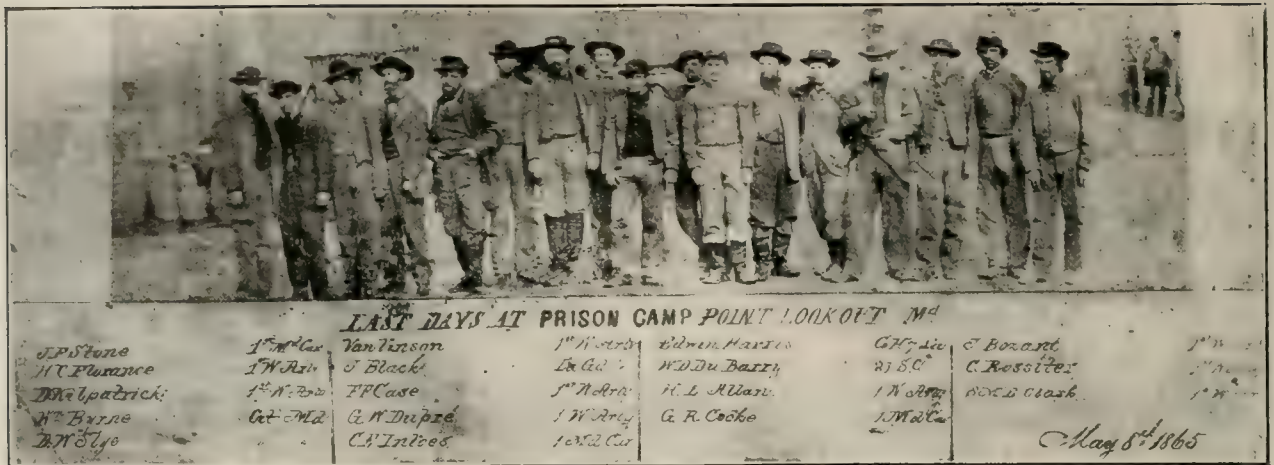 LAST DAYS AT PRISON CAMP POINT LOOKOUT Md
J.P. Stone 1st Md Cav
H C Florance 1st W. Art
D Kilpatrick 1st W. Art
Wm Byrne Md
B. W. Slye
Vanlinson 1st W Arty
J Black
F P Case 1st W Arty
G. W. Dupré 1 W Arty
C. F. Inloes 1 Md Cav
Edwin Harris
W. D. Du Barry 21 S.C.
H. L. Allan 1 W Arty
G. R. Cooke 1 Md Cav
E Bozant
C. Rossiter
Clark
May 8th 1865